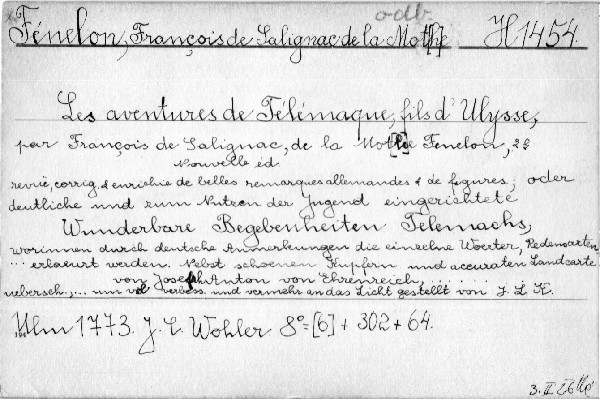 odb.
Fénelon, François de Salignac de la Mothe H 1454.
Les aventures de Télémaque, fils d'Ulysse,
par François de Salignac, de la Mothe Fenelon,
Nouvelle éd.
revüe, corrig. & enrichie de belles remarques allemandes & de figures; oder
deutliche und zum Nutzen der Jugend eingerichtete
Wunderbare Begebenheiten Telemachs,
worinnen durch deutsche Anmerkungen die einzelne Woerter, Redensarten
... erlaeurt werden. Nebst schoenen Kupfern und accuraten Landcarte
von Joseph Anton von Ehrenreich, . . . . . .
uebersch., ... um verbess. und vermehr an das Licht gestellt von J. L. K.
Ulm 1773. J. C. Wohler 8° = [6] + 302 + 64.
3. II 26